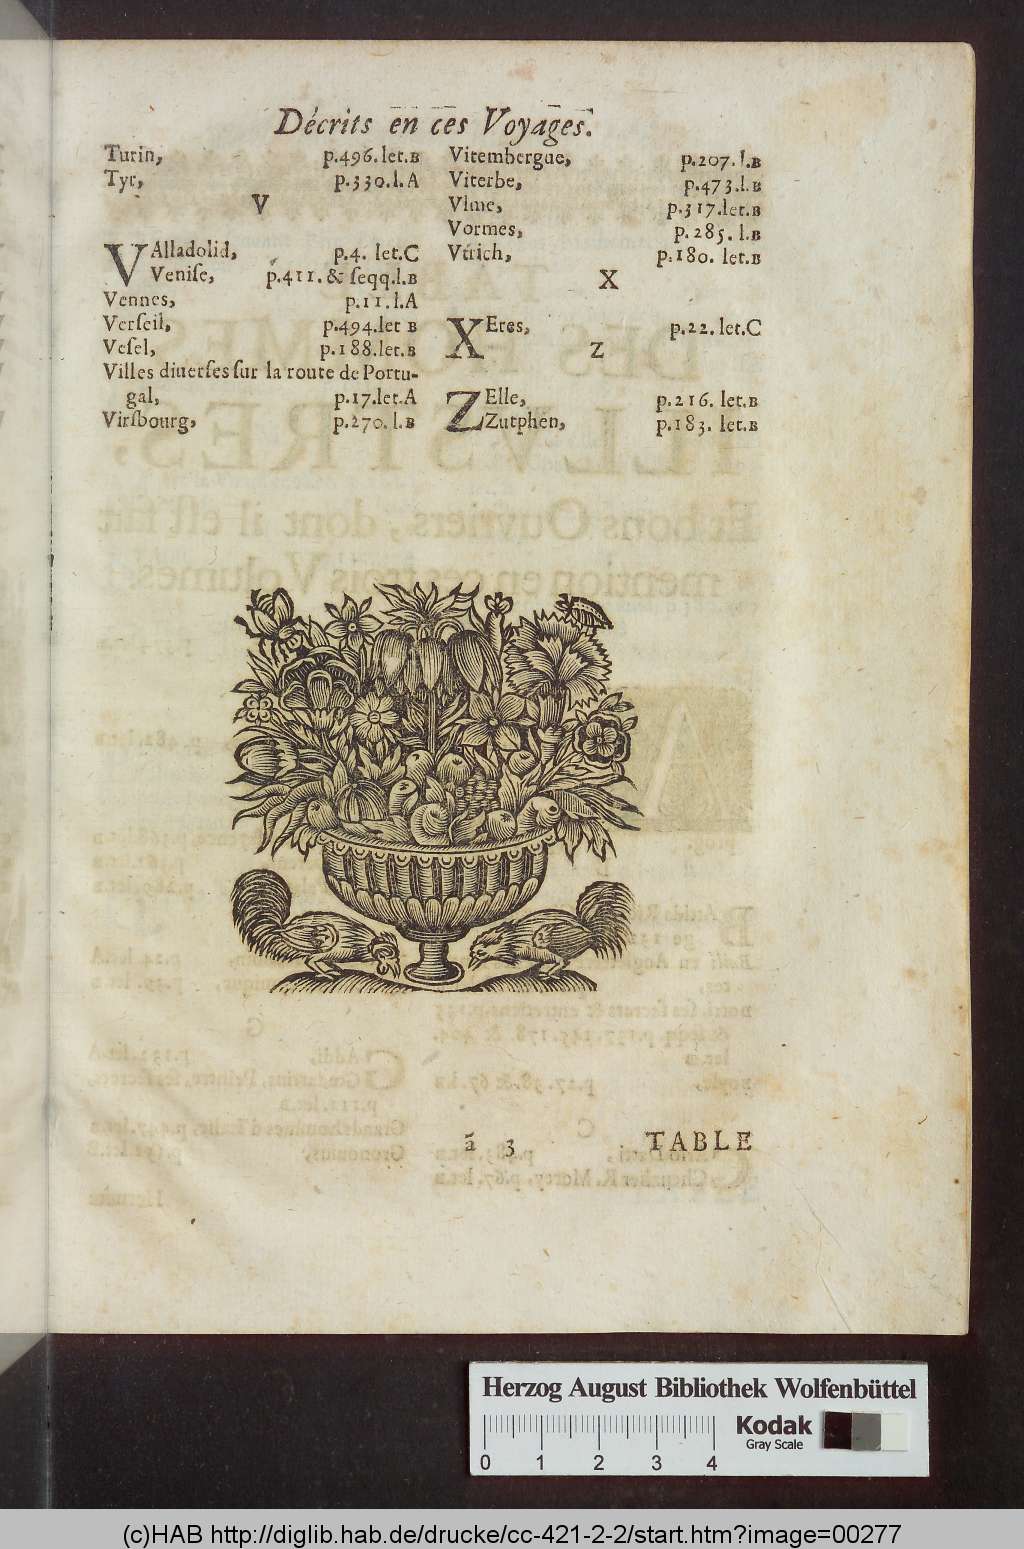 Décrits en ces Voyages.
Turin, p.496.let.B
Tyr, p.330.l.A
V
VAlladolid, p.4. let.C
Veniſe, p.411. & ſeqq.l.B
Vennes, p.11.l.A
Verſeil, p.494.let B
Veſel, p.188.let.B
Villes diuerſes ſur la route de Portu-
gal, p.17.let.A
Virſbourg, p.270.l.B
Vitembergue, p.207.l.B
Viterbe, p.473.l.B
Vlme, p.317.let.B
Vormes, p.285.l.B
Vtrich, p.180. let.B
X
XEres, p.22.let.C
Z
ZElle, p.216. let.B
Zutphen, p.183. let.B
ã 3 TABLE
Herzog August Bibliothek Wolfenbüttel
Kodak
Gray Scale
0 1 2 3 4
(c)HAB http://diglib.hab.de/drucke/cc-421-2-2/start.htm?image=00277